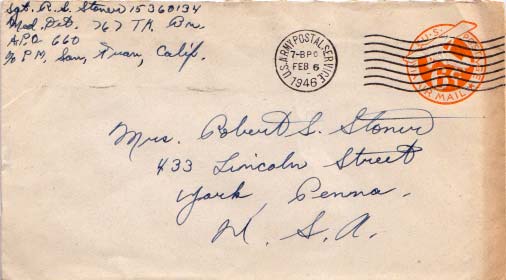 Sgt. R. S. Stoner 15360134
Med. Det. 767 TK. Bn.
A.P.O. 660
% P M, San Fran, Calif.
U.S. ARMY POSTAL SERVICE
7-BPO
FEB 6
1946
U.S. POSTAGE
VIA AIR MAIL
6¢
Mrs. Robert S. Stoner
433 Lincoln Street
York, Penna.
U. S. A.